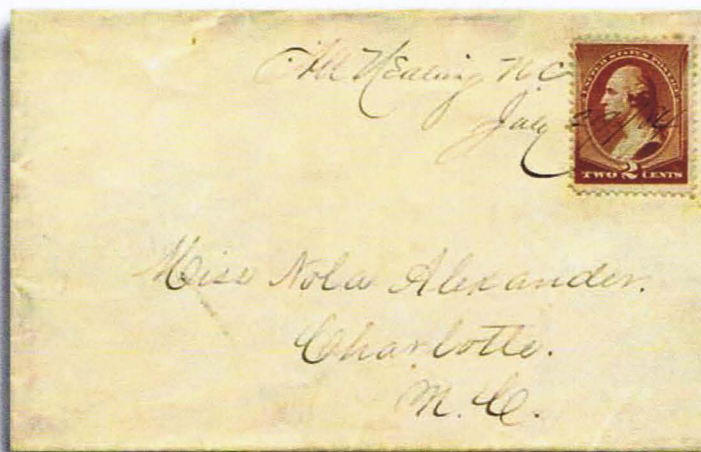 All Healing N.C.
July
UNITED STATES POSTAGE
TWO 2 CENTS
Miss Nola Alexander.
Charlotte.
N.C.